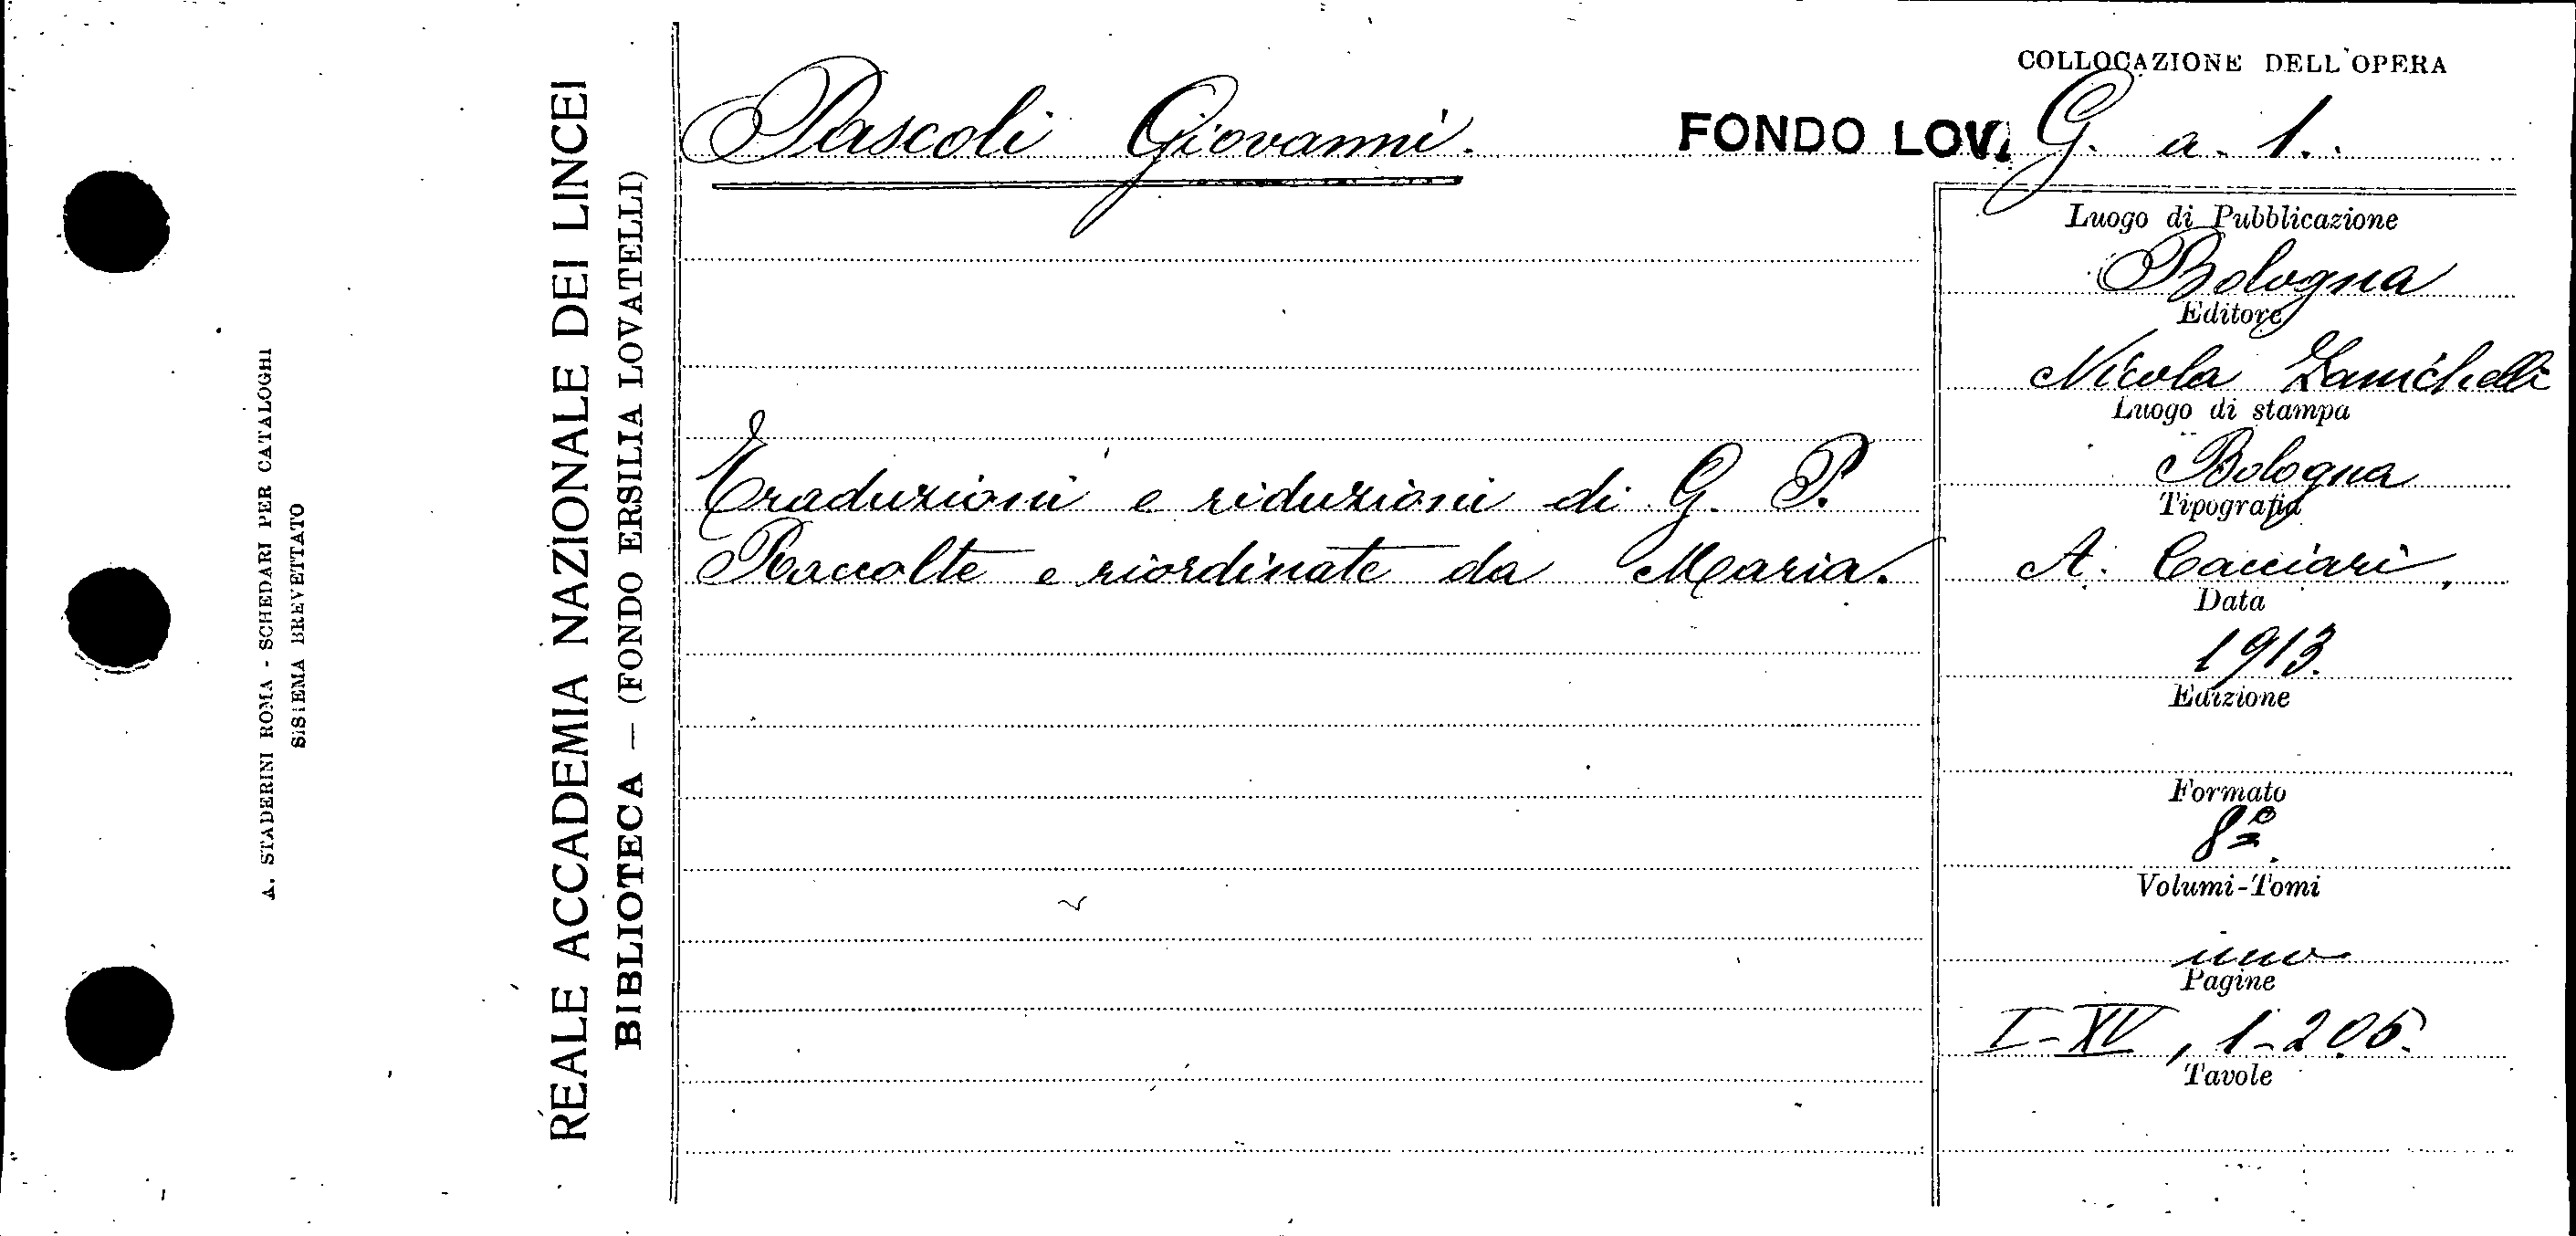 A. STADERINI ROMA - SCHEDARI PER CATALOGHI
SISTEMA BREVETTATO
REALE ACCADEMIA NAZIONALE DEI LINCEI
BIBLIOTECA — (FONDO ERSILIA LOVATELLI)
COLLOCAZIONE DELL'OPERA
Pascoli Giovanni. FONDO LOV. G. a. 1.
Traduzioni e riduzioni di G. P.
Raccolte e riordinate da Maria.
Luogo di Pubblicazione
Bologna
Editore
Nicola Zanichelli
Luogo di stampa
Bologna
Tipografia
A. Cacciari.
Data
1913.
Edizione
Formato
8º
Volumi-Tomi
uno
Pagine
I-XV, 1-205.
Tavole